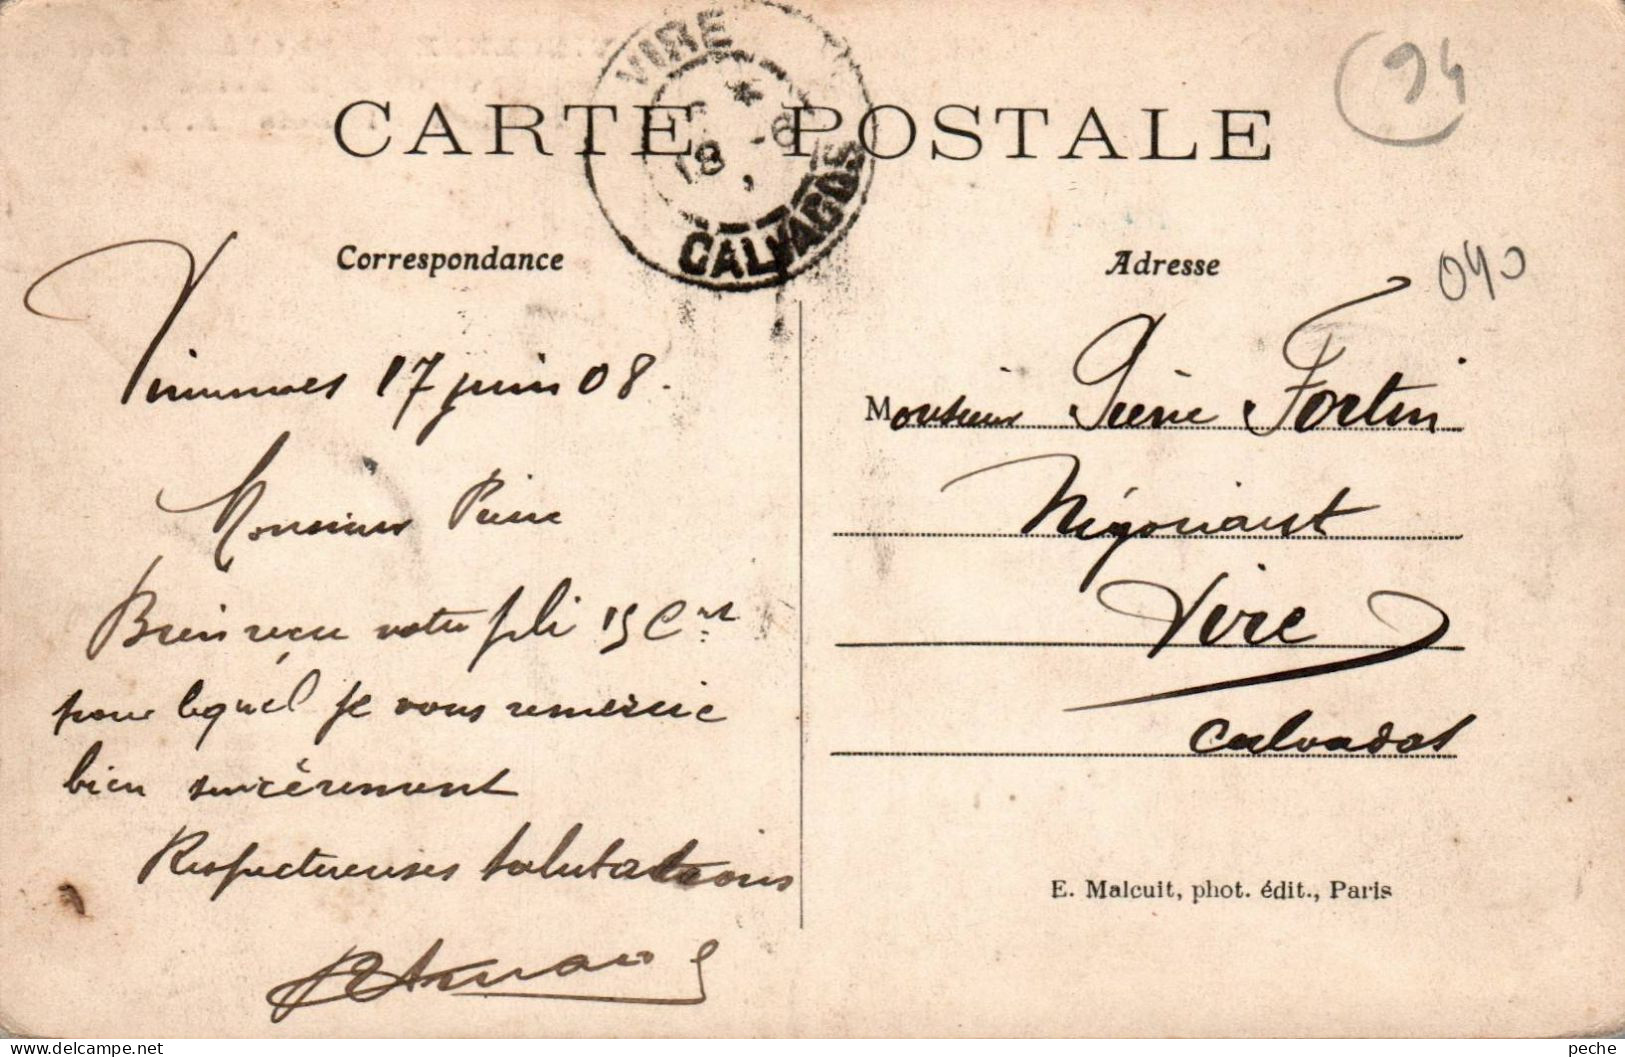 CARTE POSTALE
VIRE
18 -6
CALVADOS
94
040
Correspondance
Vincennes 17 juin 08.
Monsieur Pierre
Bien reçu votre pli 15 Ct
pour lequel je vous remercie
bien sincèrement
Respectueuses salutations
Adresse
Monsieur Pierre Fortin
Négociant
Vire
Calvados
E. Malcuit, phot. édit., Paris
peche